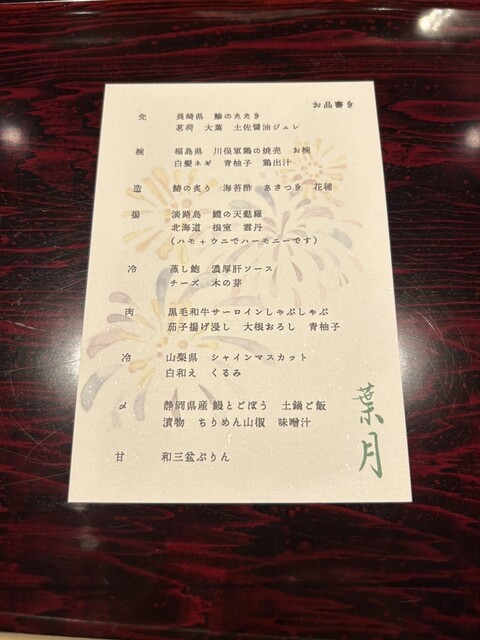 お品書き
先 長崎県 鯵のたたき
茗荷 大葉 土佐醤油ジュレ
椀 福島県 川俣軍鶏の焼売 お椀
白髪ネギ 青柚子 鶏出汁
造 鰆の炙り 海苔酢 あさつき 花穂
揚 淡路島 鱧の天麩羅
北海道 根室 雲丹
(ハモ+ウニでハーモニーです)
冷 蒸し鮑 濃厚肝ソース
チーズ 木の芽
肉 黒毛和牛サーロインしゃぶしゃぶ
茄子揚げ浸し 大根おろし 青柚子
冷 山梨県 シャインマスカット
白和え くるみ
〆 静岡県産 鰻とごぼう 土鍋ご飯
漬物 ちりめん山椒 味噌汁
甘 和三盆ぷりん
葉月